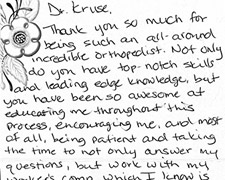 Dr. Kruse,
Thank you so much for
being such an all-around
incredible orthopedist. Not only
do you have top-notch skills
and leading edge knowledge, but
you have been so awesome at
educating me throughout this
process, encouraging me, and most
of all, being patient and taking
the time to not only answer my
questions, but work with my
worker's comp, which I know is